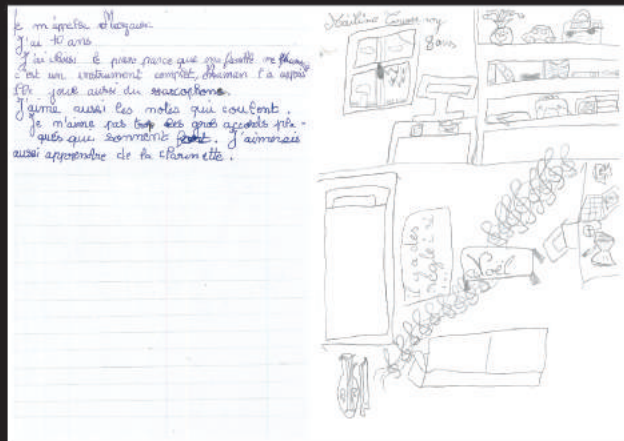 Je m'appelle Margaux
J'ai 10 ans
J'ai choisi le piano parce que ma famille
c'est un instrument complet, maman l'a appris
Elle joue aussi du saxophone.
J'aime aussi les notes qui coulent.
Je n'aime pas trop les gros accords pla-
qués qui sonnent fort. J'aimerais
aussi apprendre de la clarinette.
8 ans
il y a des
Noël